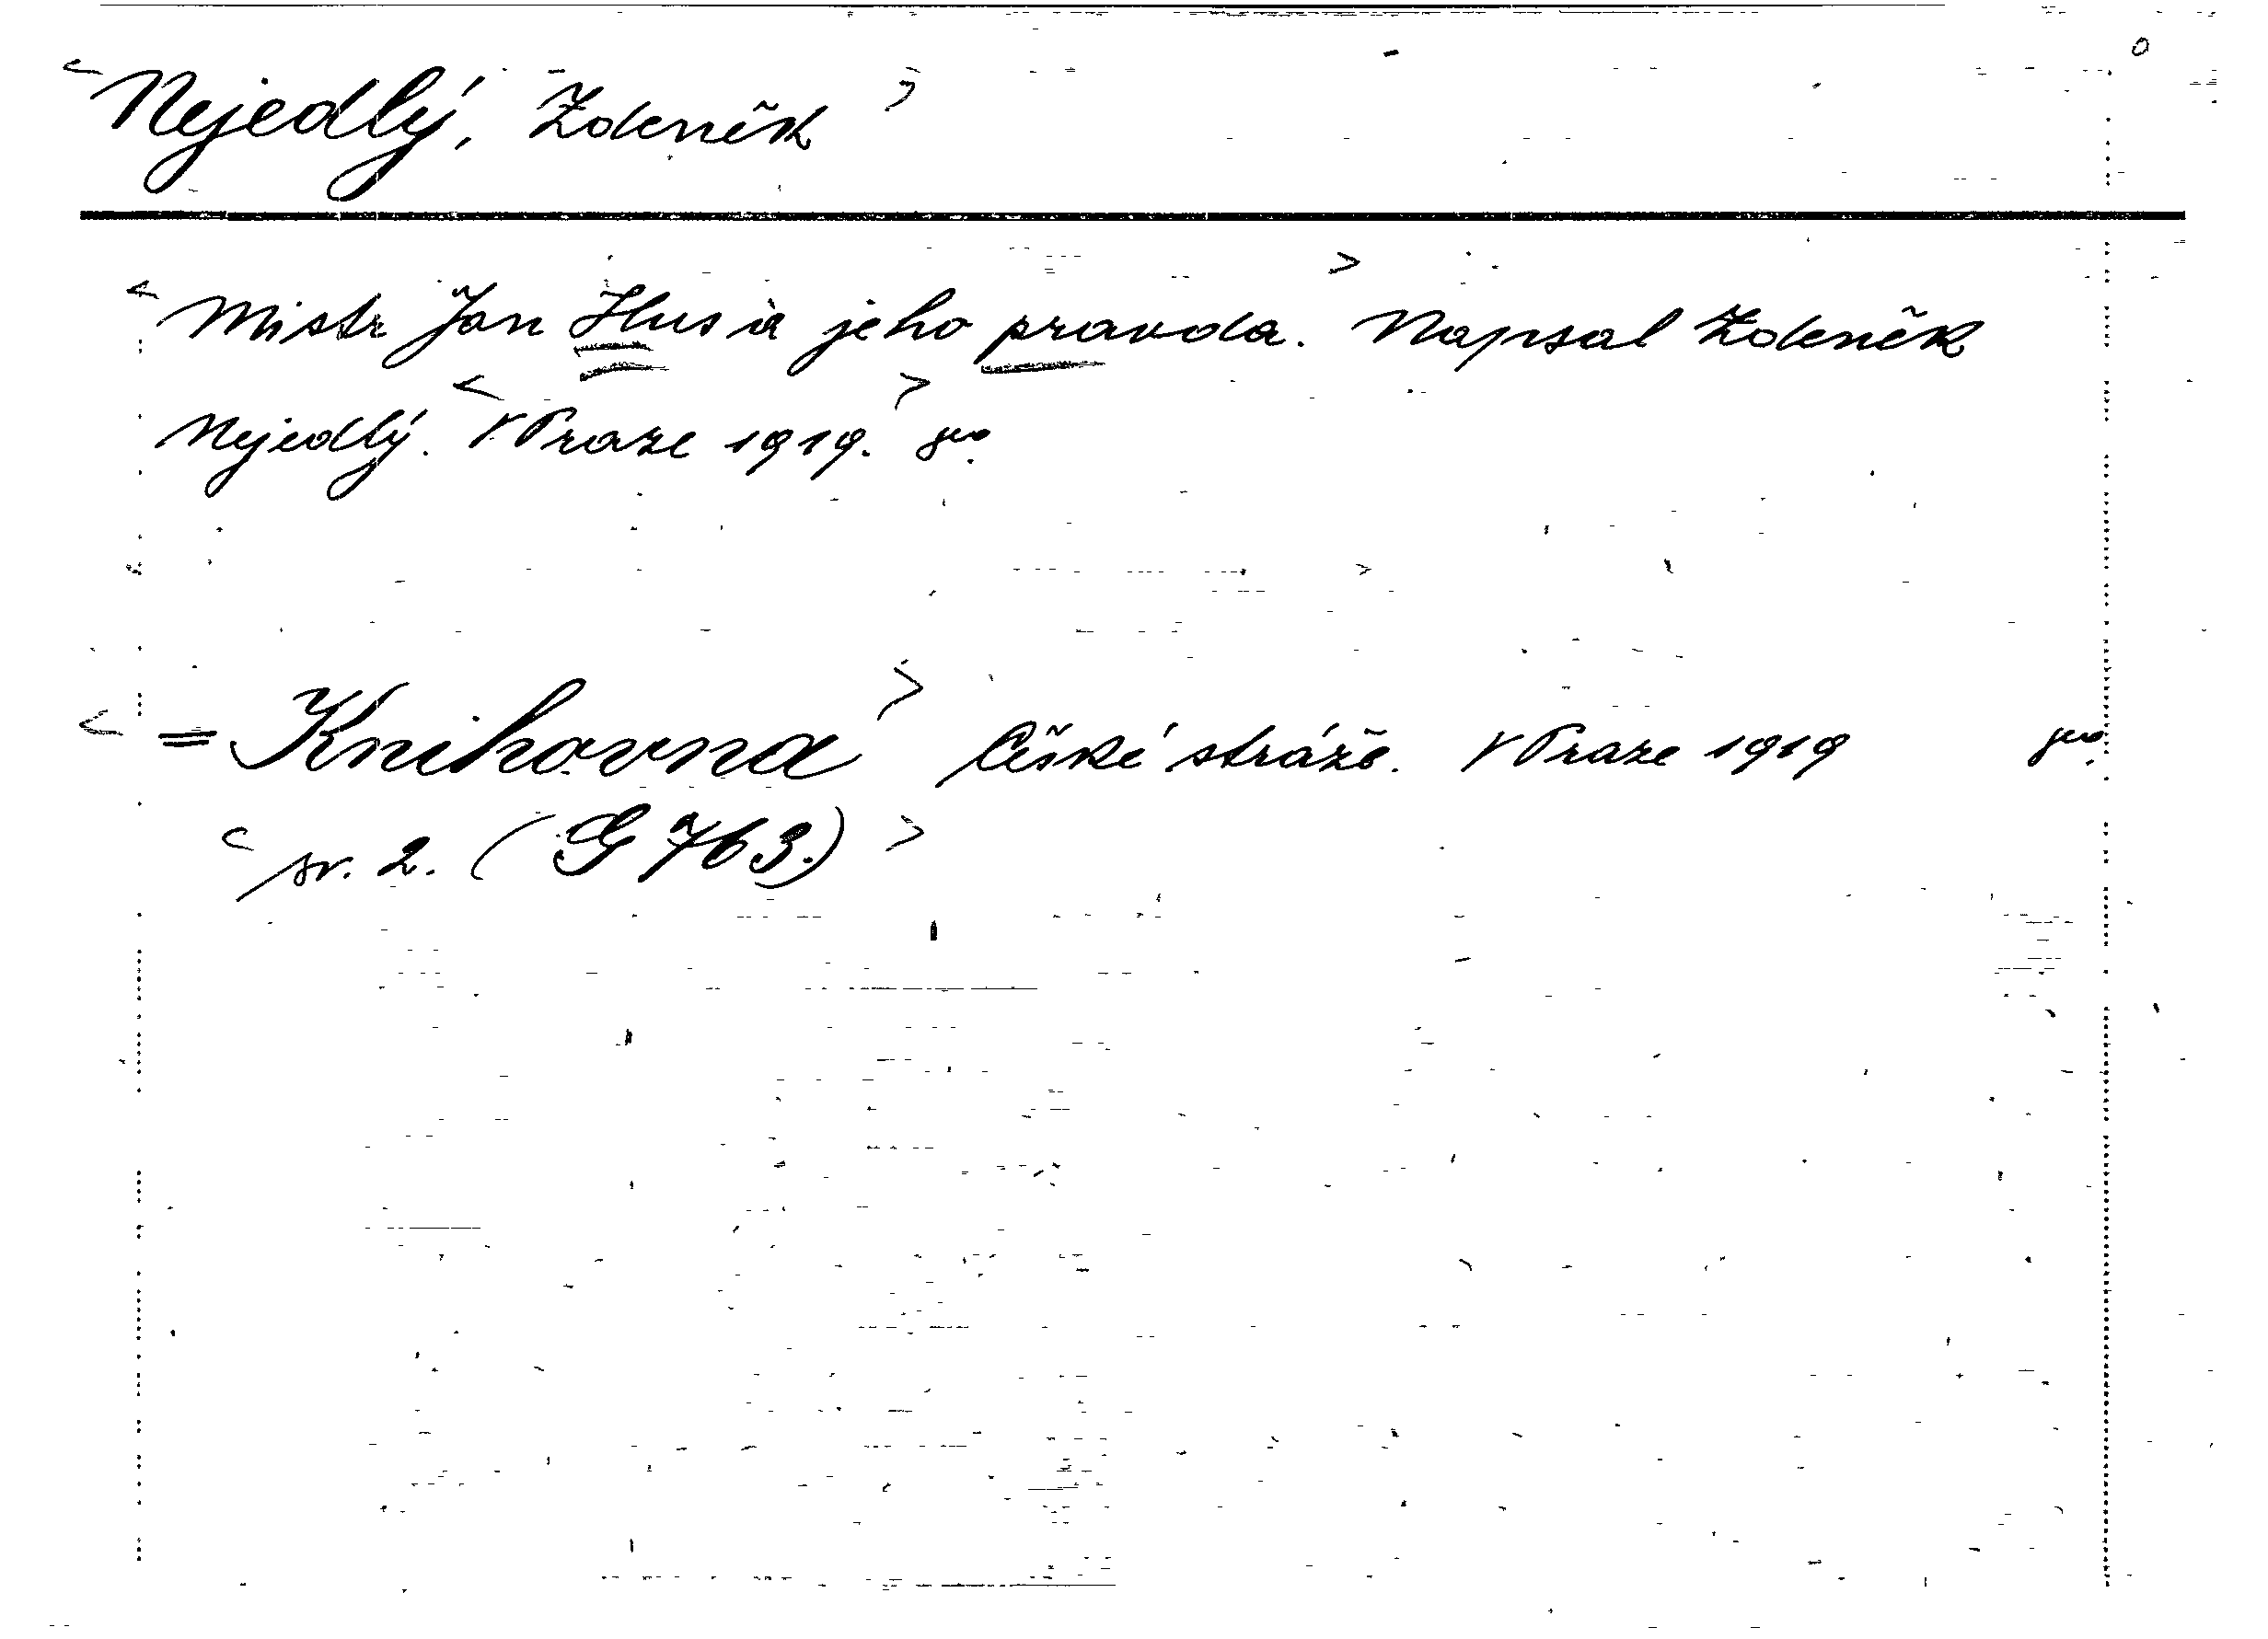 <Nejedlý, Zdeněk>
<Mistr Jan Hus a jeho pravda.> Napsal Zdeněk
Nejedlý. <V Praze 1919.> 8º.
<= Knihovna> České stráže. V Praze 1919 8º.
<sv. 2. (G 763.)>